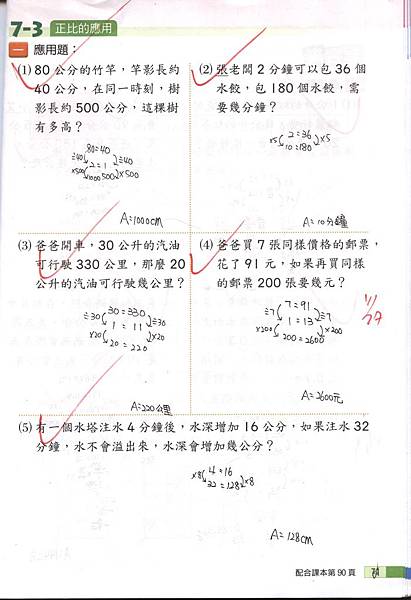 7-3 正比的應用
一 應用題：
(1) 80 公分的竹竿，竿影長約
40 公分，在同一時刻，樹
影長約 500 公分，這棵樹
有多高？
80=40
÷40 2=1 ÷40
×500 1000 500 ×500
A=1000cm
(2) 張老闆 2 分鐘可以包 36 個
水餃，包 180 個水餃，需
要幾分鐘？
2=36
×5 10=180 ×5
A=10分鐘
(3) 爸爸開車，30 公升的汽油
可行駛 330 公里，那麼 20
公升的汽油可行駛幾公里？
30=330
÷30 1=11 ÷30
×20 20=220 ×20
A=220公里
(4) 爸爸買 7 張同樣價格的郵票，
花了 91 元，如果再買同樣
的郵票 200 張要幾元？
7=91
÷7 1=13 ÷7
×200 200=2600 ×200
A=2600元
(5) 有一個水塔注水 4 分鐘後，水深增加 16 公分，如果注水 32
分鐘，水不會溢出來，水深會增加幾公分？
4=16
×8 32=128 ×8
A=128cm
配合課本第 90 頁